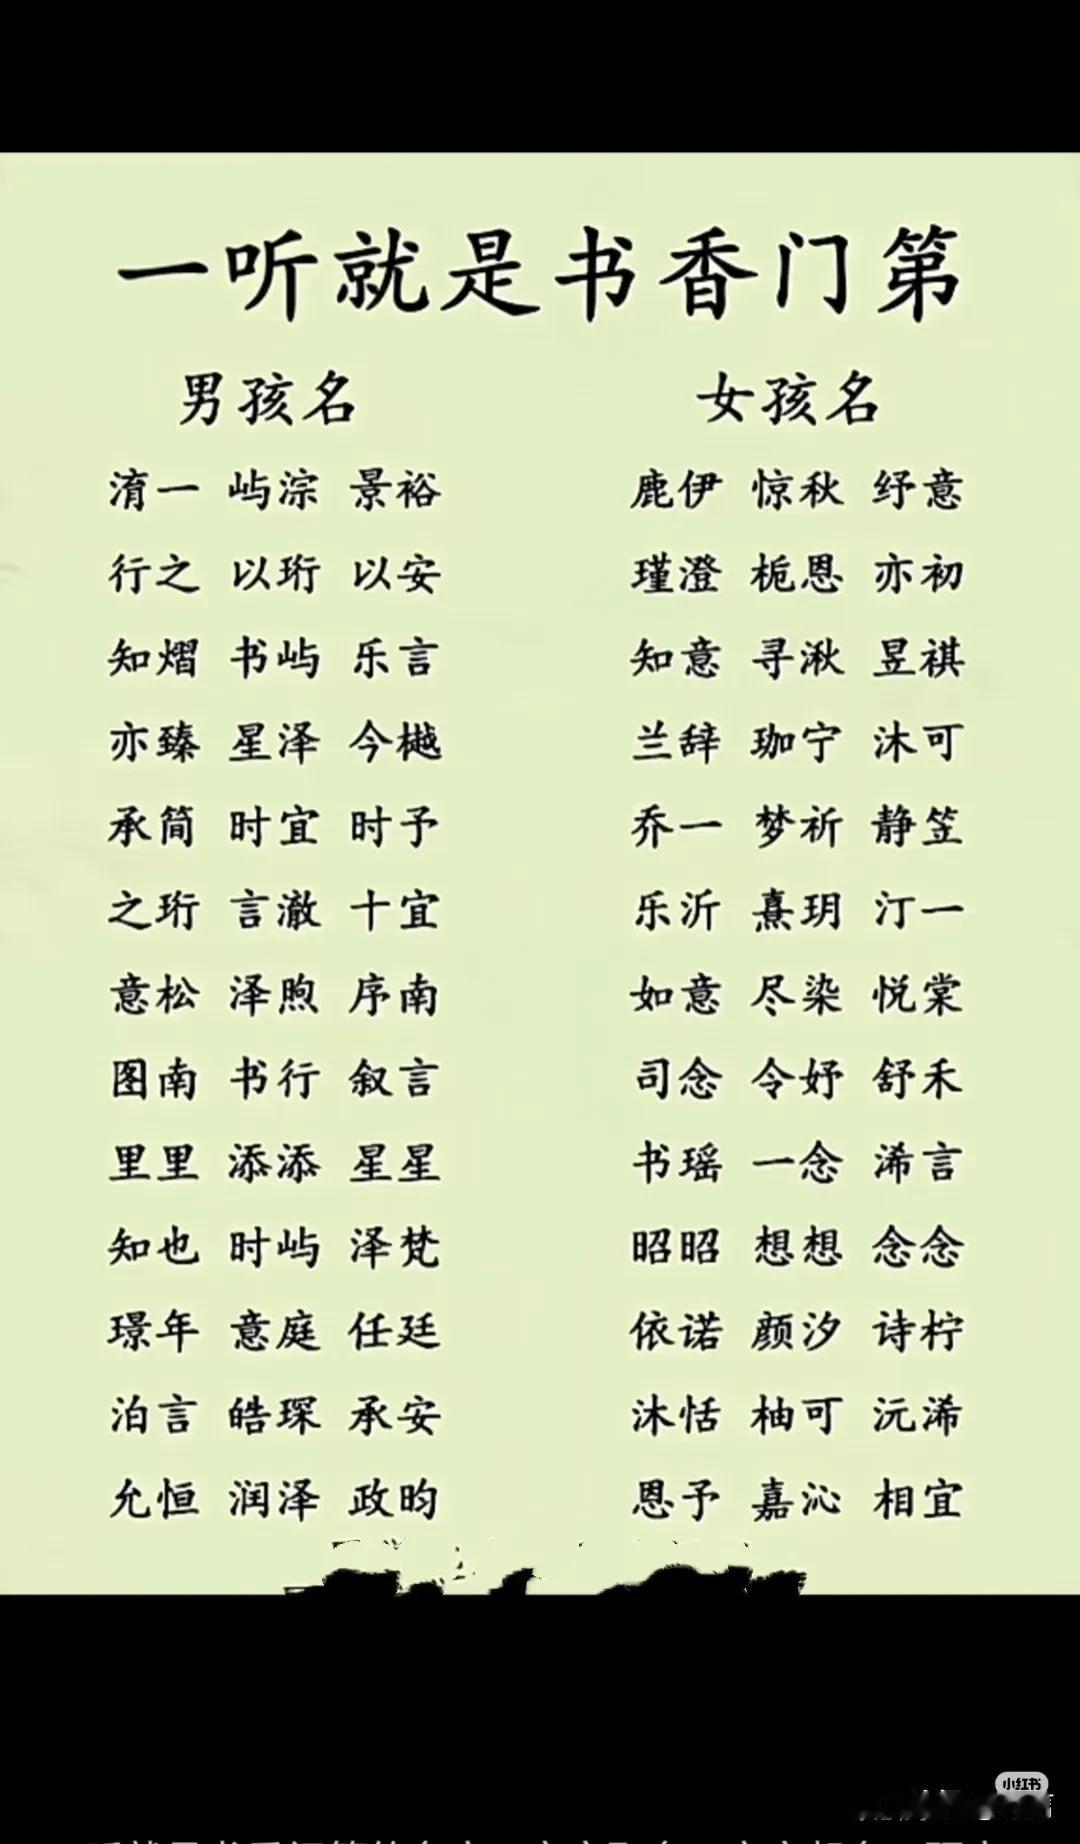 一听就是书香门第
男孩名 女孩名
淯一 屿淙 景裕 鹿伊 惊秋 纾意
行之 以珩 以安 瑾澄 栀恩 亦初
知熠 书屿 乐言 知意 寻湫 昱祺
亦臻 星泽 今樾 兰辞 珈宁 沐可
承简 时宜 时予 乔一 梦祈 静笠
之珩 言澈 十宜 乐沂 熹玥 汀一
意松 泽煦 序南 如意 尽染 悦棠
图南 书行 叙言 司念 令妤 舒禾
里里 添添 星星 书瑶 一念 浠言
知也 时屿 泽梵 昭昭 想想 念念
璟年 意庭 任廷 依诺 颜汐 诗柠
泊言 皓琛 承安 沐恬 柚可 沅浠
允恒 润泽 政昀 恩予 嘉沁 相宜
小红书